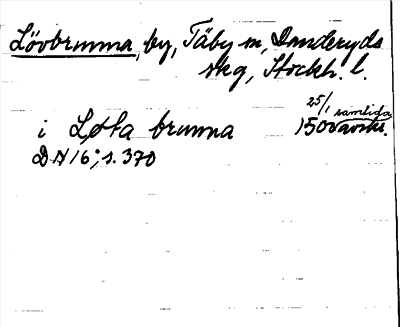 Lövbrunna, by, Täby sn, Danderyds
skg, Stockh. l.
25/1 samtida
i Løta brunna 1500 avskr.
DN 16, s. 370